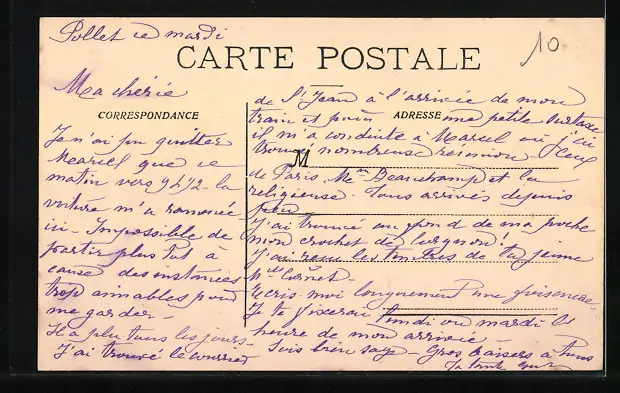 Pollet ce mardi
10
CARTE POSTALE
Ma chérie
CORRESPONDANCE
ADRESSE
M
Je n'ai pu quitter
Marcel que ce
matin vers 9h½ - la
voiture m'a ramenée
ici - Impossible de
partir plus tôt à
cause des instances
trop aimables pour
me garder -
Il a plu tous les jours -
J'ai trouvé le courrier
de St Jean à l'arrivée de mon
train et puis une petite
il m'a conduite à Marcel où j'ai
trouvé nombreuse réunion. Ceux
de Paris, Me Beauchamp et la
religieuse - Tous arrivés depuis
peu
J'ai trouvé au fond de ma poche
mon crochet de lorgnon !
J'ai reçu les timbres de ta jeune
Ecris-moi longuement
Je te fixerai lundi ou mardi l'
heure de mon arrivée -
Sois bien sage - Gros baisers à tous
Ta tante